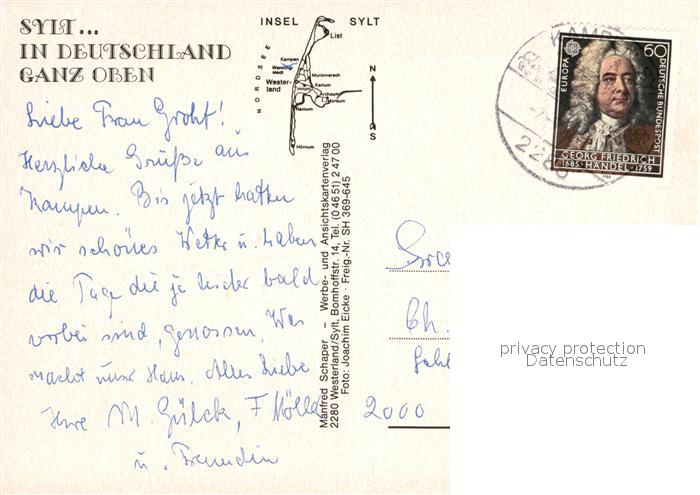 SYLT...
IN DEUTSCHLAND
GANZ OBEN
INSEL SYLT
NORDSEE
List
Kampen
Westerland
Munkmarsch
Keitum
Archsum
Morsum
Rantum
Hörnum
N
S
KAMPEN
EUROPA
60
DEUTSCHE BUNDESPOST
GEORG FRIEDRICH
1685 · HÄNDEL · 1759
Liebe Frau Groht!
Herzliche Grüße aus
Kampen. Bis jetzt hatten
wir schönes Wetter u. haben
die Tage die ja leider bald
vorbei sind, genossen. Was
macht unser Haus. Alles Liebe
Ihre M. Gülck, F. Mölle
u. Freundin
Manfred Schaper – Werbe- und Ansichtskartenverlag
2280 Westerland/Sylt, Bomhoffstr. 14, Tel. (0 46 51) 2 47 00
Foto: Joachim Eicke · Freig.-Nr. SH 369-645
Ch.
2000
privacy protection
Datenschutz